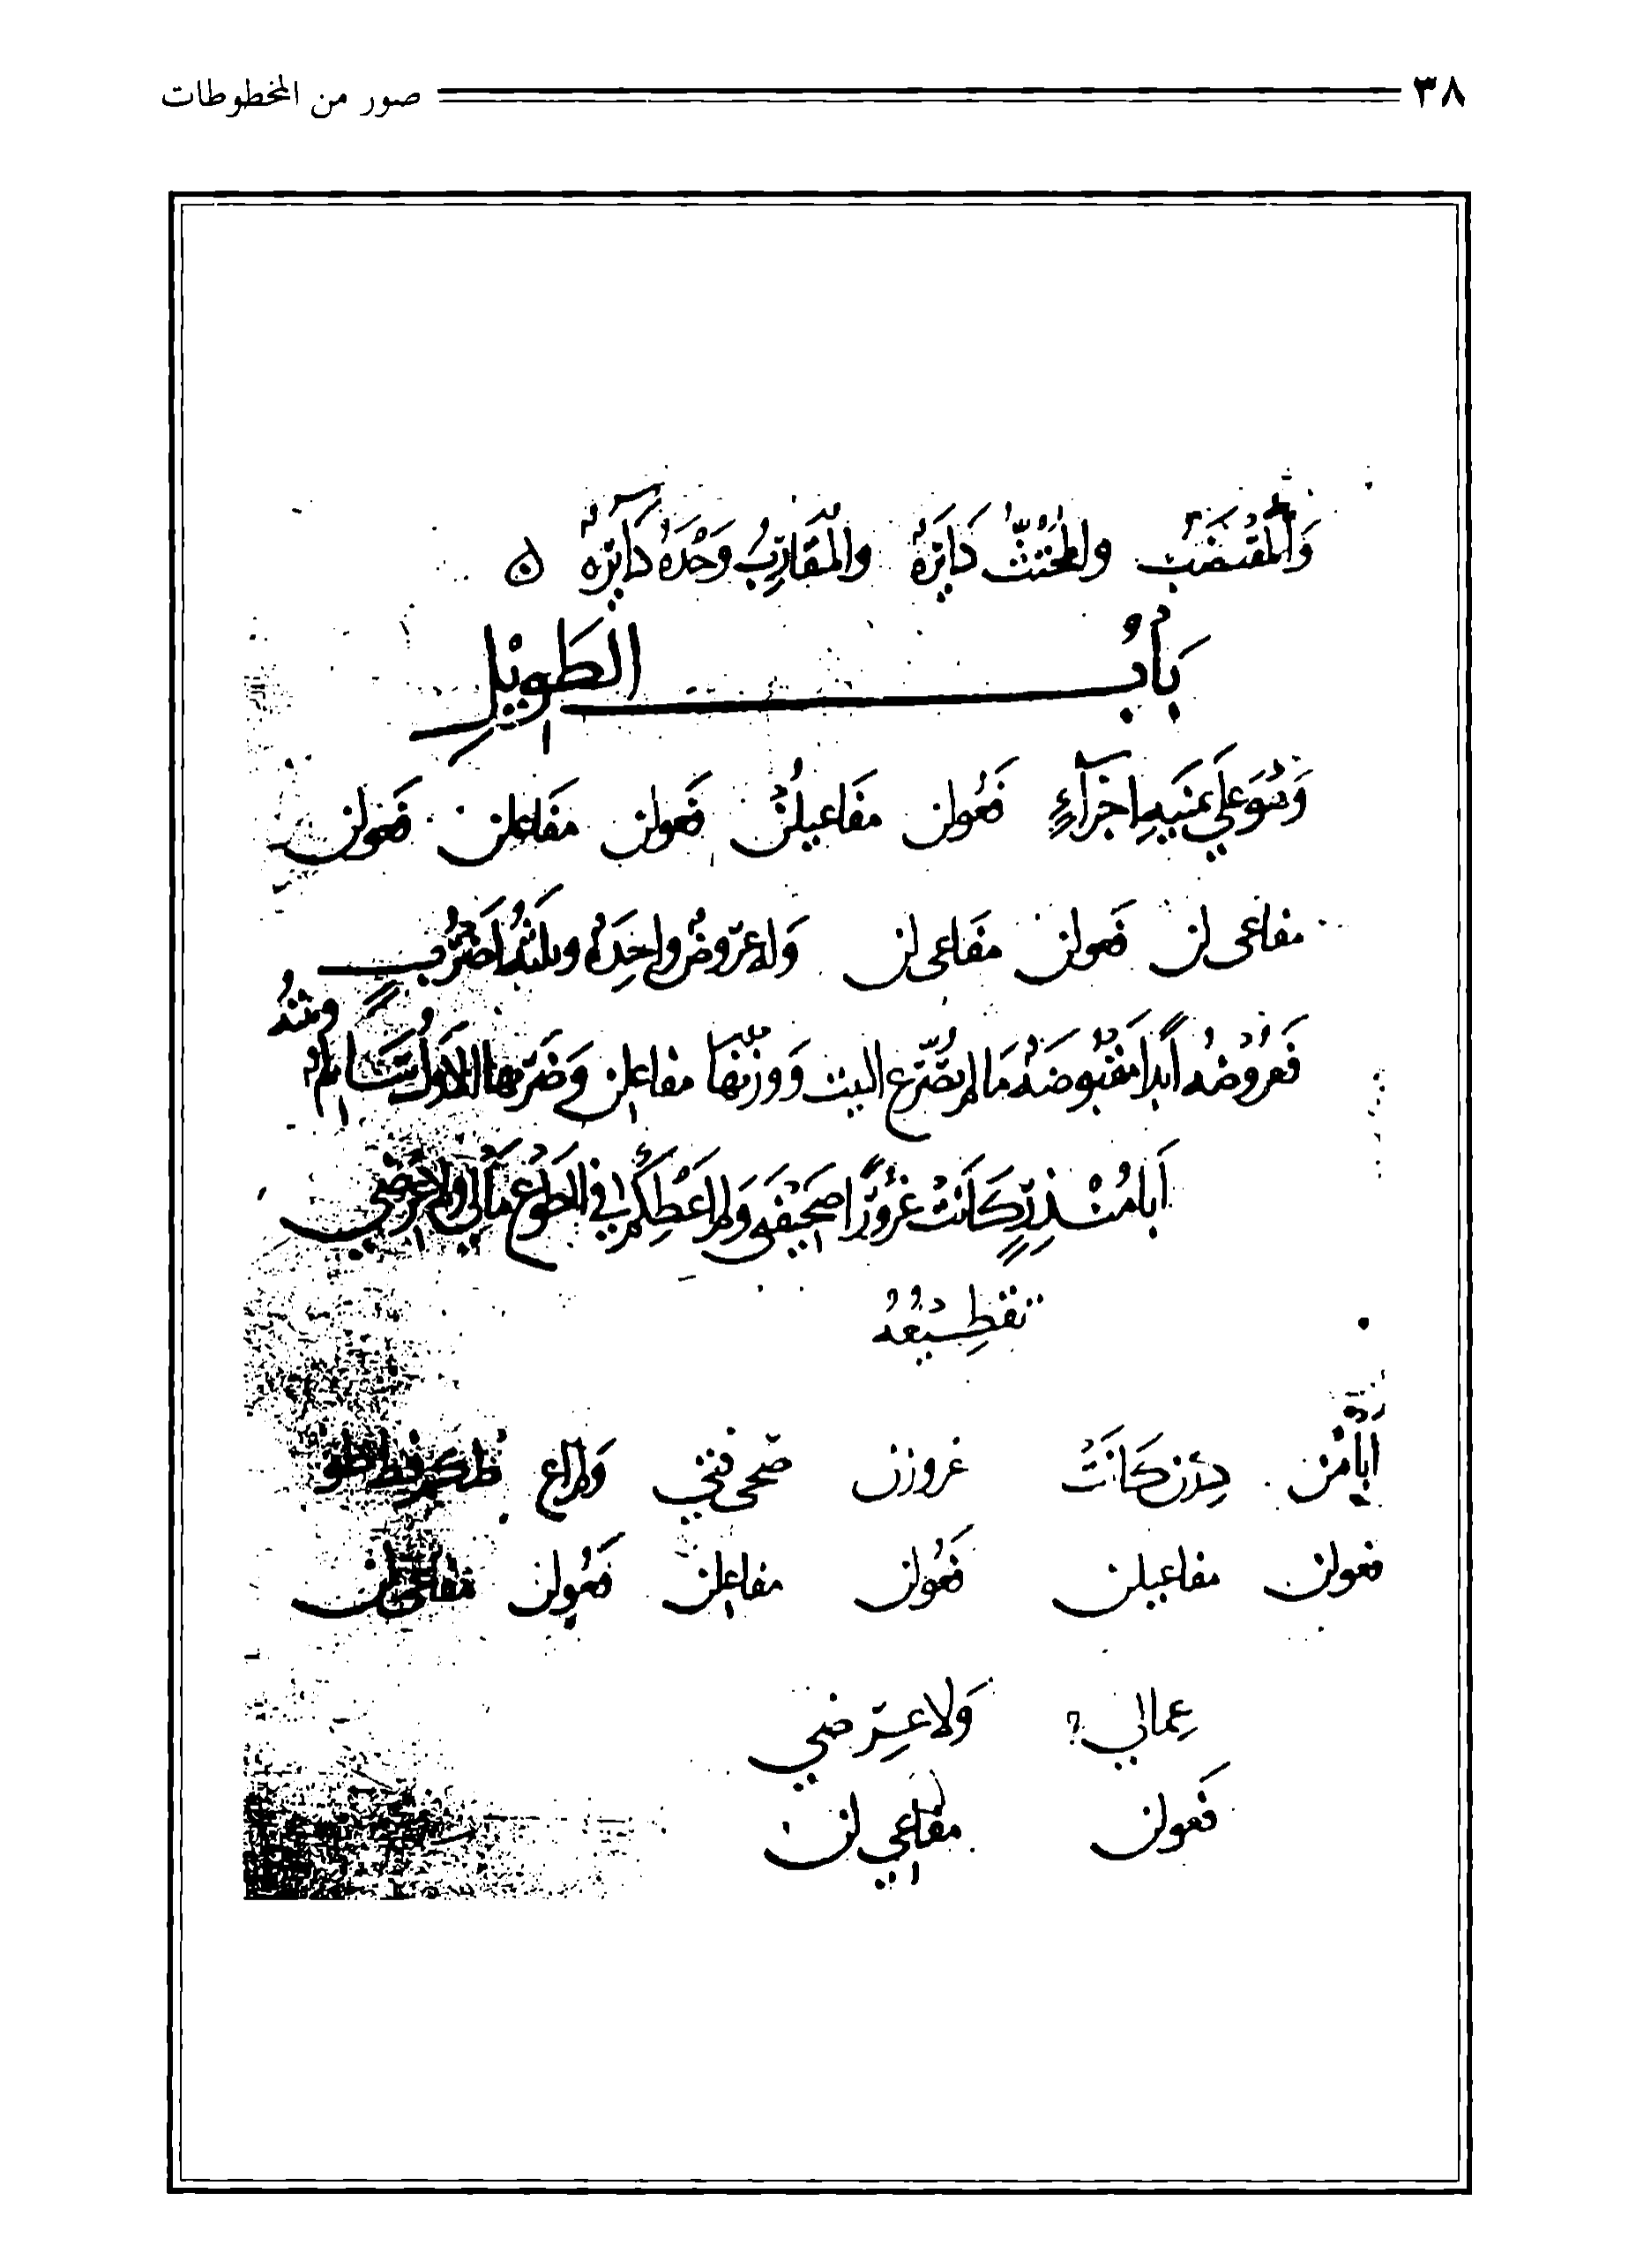 ٣٨ صور من المخطوطات
وَالمُقْتَضَبُ والمُجْتَثُّ دَائِرَةٌ والمُتَقَارِبُ وَحْدَهُ دَائِرَةٌ
بَابُ الطَوِيْلِ
وَهُوَ عَلَي ثمنيهِ اجزَآءٍ فَعُولن مفَاعيلنْ فَعولن مفَاعلن فَعولن
مفاعى لن فَعولن مفَاعى لن وَله عَروضٌ واحِدَهٌ وثلثهُ اضرُبٍ
فَعَرُوْضُه أبَداً مَقبُوضَهٌ مَا لم يُصَرَّعِ البيت وَوزنُها مفاعلن وَضَربها الاوَلُ سَالم وبيتُهُ
أبَا مُنْذِرٍ كَانَتْ غُرُوْرًا صَحِيْفَتِى وَلم اُعْطِكُمْ في الطَوْعِ مَالِي ولا عِرْضِي
تقطِيْعُهُ
أبَا مُن ذِرن كَانَتْ غرورن صَحى فتي وَلم اع طكم فططو
فعولن مفاعيلن فَعُولن مفاعلن فَعُولن مفاعى لن
عِمالي وَلا عِرضي
فَعولن مفَاعي لن